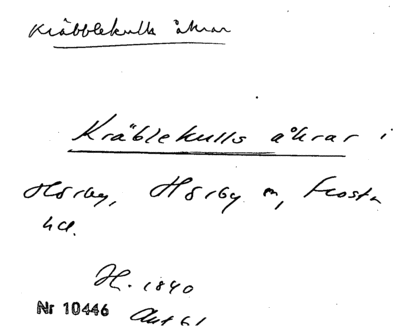 Kräbblekulls åkrar
Kräblekulls åkrar i
Hörby, Hörby sn, Frosta
hd.
H. 1840
Nr 10446